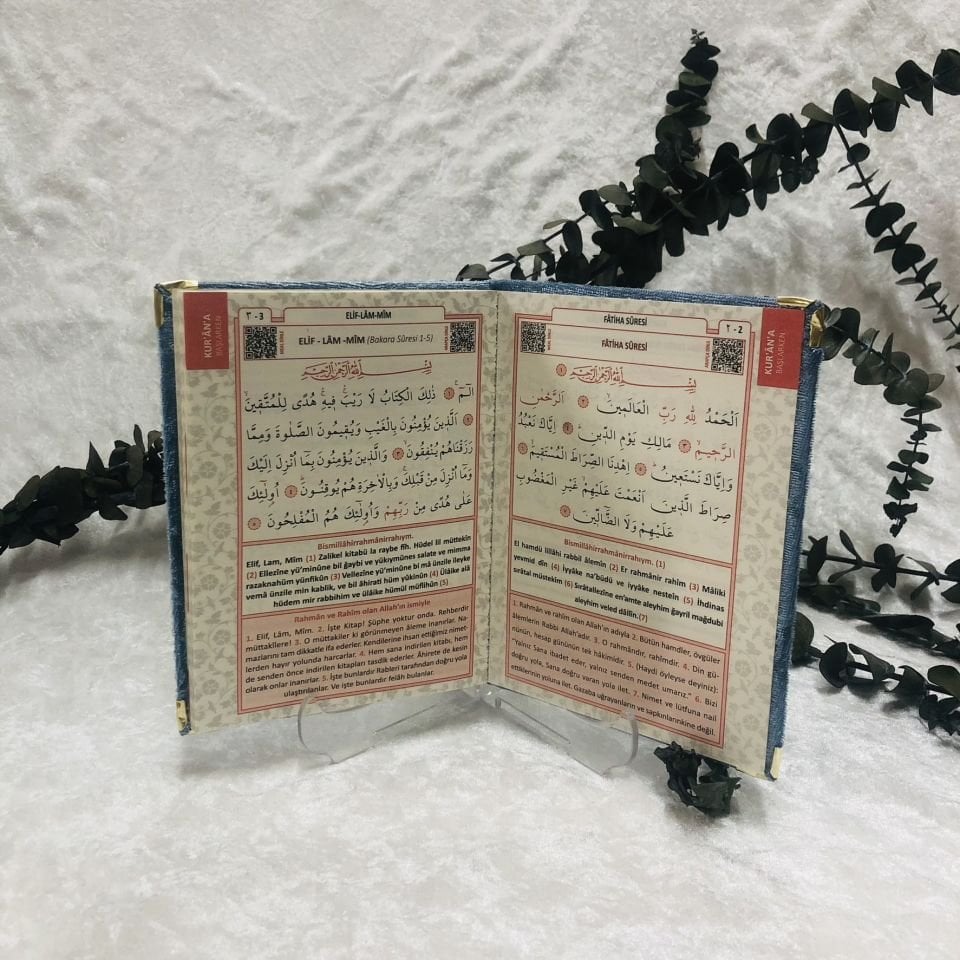 FÂTİHA SÛRESİ
٢ - 2
KUR'ÂN'A
BAŞLARKEN
FÂTİHA SÛRESİ
بِسْمِ اللّٰهِ الرَّحْمٰنِ الرَّحٖيمِ ١
اَلْحَمْدُ لِلّٰهِ رَبِّ الْعَالَمٖينَۙ ٢ اَلرَّحْمٰنِ
الرَّحٖيمِۙ ٣ مَالِكِ يَوْمِ الدّٖينِۜ ٤ اِيَّاكَ نَعْبُدُ
وَاِيَّاكَ نَسْتَعٖينُۜ ٥ اِهْدِنَا الصِّرَاطَ الْمُسْتَقٖيمَۙ ٦
صِرَاطَ الَّذٖينَ اَنْعَمْتَ عَلَيْهِمْ غَيْرِ الْمَغْضُوبِ
عَلَيْهِمْ وَلَا الضَّٓالّٖينَ ٧
Bismillâhirrahmânirrahıym. (1)
El hamdü lillâhi rabbil âlemin (2) Er rahmânir rahîm (3) Mâliki
yevmid dîn (4) İyyâke na'büdü ve iyyâke nesteîn (5) İhdinas
sıratal müstekim (6) Sıratallezîne en'amte aleyhim ğayril mağdubi
aleyhim veled dâllîn.(7)
1. Rahmân ve rahîm olan Allah'ın adıyla 2. Bütün hamdler, övgüler
âlemlerin Rabbi Allah'adır. 3. O rahmândır, rahîmdir. 4. Din gü-
nünün, hesap gününün tek hâkimidir. 5. (Haydi öyleyse deyiniz):
"Yalnız Sana ibadet eder, yalnız senden medet umarız." 6. Bizi
doğru yola, Sana doğru varan yola ilet. 7. Nimet ve lütfuna nail
ettiklerinin yoluna ilet. Gazaba uğrayanların ve sapkınlarınkine değil.
KUR'ÂN'A
BAŞLARKEN
٣ - 3
ELİF-LÂM-MÎM
ELİF - LÂM -MÎM (Bakara Sûresi 1-5)
بِسْمِ اللّٰهِ الرَّحْمٰنِ الرَّحٖيمِ
الٓمٓۚ ١ ذٰلِكَ الْكِتَابُ لَا رَيْبَۚ فٖيهِۚ هُدًى لِلْمُتَّقٖينَۙ
٢ اَلَّذٖينَ يُؤْمِنُونَ بِالْغَيْبِ وَيُقٖيمُونَ الصَّلٰوةَ وَمِمَّا
رَزَقْنَاهُمْ يُنْفِقُونَۙ ٣ وَالَّذٖينَ يُؤْمِنُونَ بِمَٓا اُنْزِلَ اِلَيْكَ
وَمَٓا اُنْزِلَ مِنْ قَبْلِكَۚ وَبِالْاٰخِرَةِ هُمْ يُوقِنُونَۜ ٤ اُو۬لٰٓئِكَ
عَلٰى هُدًى مِنْ رَبِّهِمْ وَاُو۬لٰٓئِكَ هُمُ الْمُفْلِحُونَ ٥
Bismillâhirrahmânirrahıym.
Elif, Lam, Mîm (1) Zalikel kitabü la raybe fîh. Hüdel lil müttekin
(2) Ellezîne yü'minûne bil ğaybi ve yükıymûnes salate ve mimma
razaknahüm yünfikûn (3) Vellezîne yü'minûne bi mâ ünzile ileyke
vemâ ünzile min kablik, ve bil âhirati hüm yûkinûn (4) Ülâike alâ
hüdem mir rabbihim ve ülâike hümül müflihûn (5)
Rahmân ve Rahîm olan Allah'ın ismiyle
1. Elif, Lâm, Mîm. 2. İşte Kitap! Şüphe yoktur onda. Rehberdir
müttakîlere! 3. O müttakiler ki görünmeyen âleme inanırlar. Na-
mazlarını tam dikkatle ifa ederler. Kendilerine ihsan ettiğimiz nimet-
lerden hayır yolunda harcarlar. 4. Hem sana indirilen kitabı, hem
de senden önce indirilen kitapları tasdik ederler. Âhirete de kesin
olarak onlar inanırlar. 5. İşte bunlardır Rableri tarafından doğru yola
ulaştırılanlar. Ve işte bunlardır felâh bulanlar.